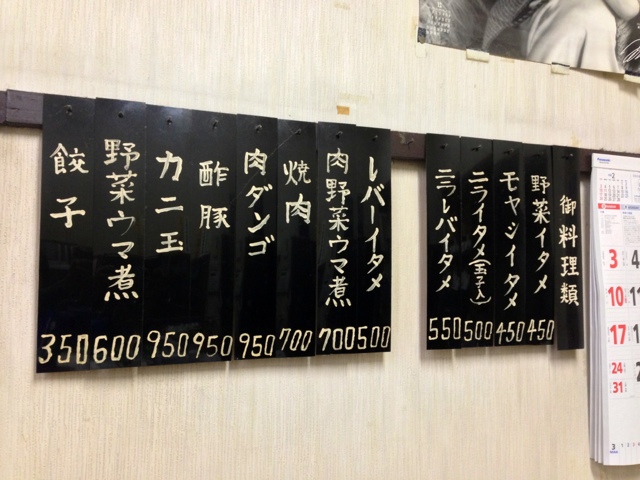 御料理類
野菜イタメ 450
モヤシイタメ 450
ニライタメ(玉子入) 500
ニラレバイタメ 550
レバーイタメ 500
肉野菜ウマ煮 700
焼肉 700
肉ダンゴ 950
酢豚 950
カニ玉 950
野菜ウマ煮 600
餃子 350
Panasonic
3 4
10 11
17
24
31
3